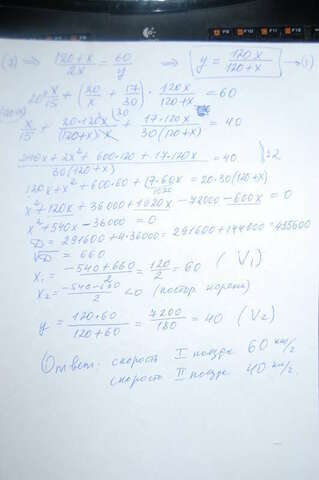 (2) ⇒ (120+x)/2x = 60/y ⇒ y = 120x/(120+x) → (1)
x/15 + (20/x + 17/30) · 120x/(120+x) = 60
x/15 + 20·120x/((120+x)·x) + 17·120x/(30(120+x)) = 40
(240x + 2x² + 600·120 + 17·120x)/(30(120+x)) = 40 | :2
120x + x² + 600·60 + 17·60x = 20·30(120+x)
1020
x² + 120x + 36000 + 1020x - 72000 - 600x = 0
x² + 540x - 36000 = 0
D = 291600 + 4·36000 = 291600 + 144000 = 435600
√D = 660
x₁ = (-540+660)/2 = 120/2 = 60 (V₁)
x₂ = (-540-660)/2 < 0 (постор. корень)
y = 120·60/(120+60) = 7200/180 = 40 (V₂)
Ответ: скорость I поезда 60 км/ч
скорость II поезда 40 км/ч.